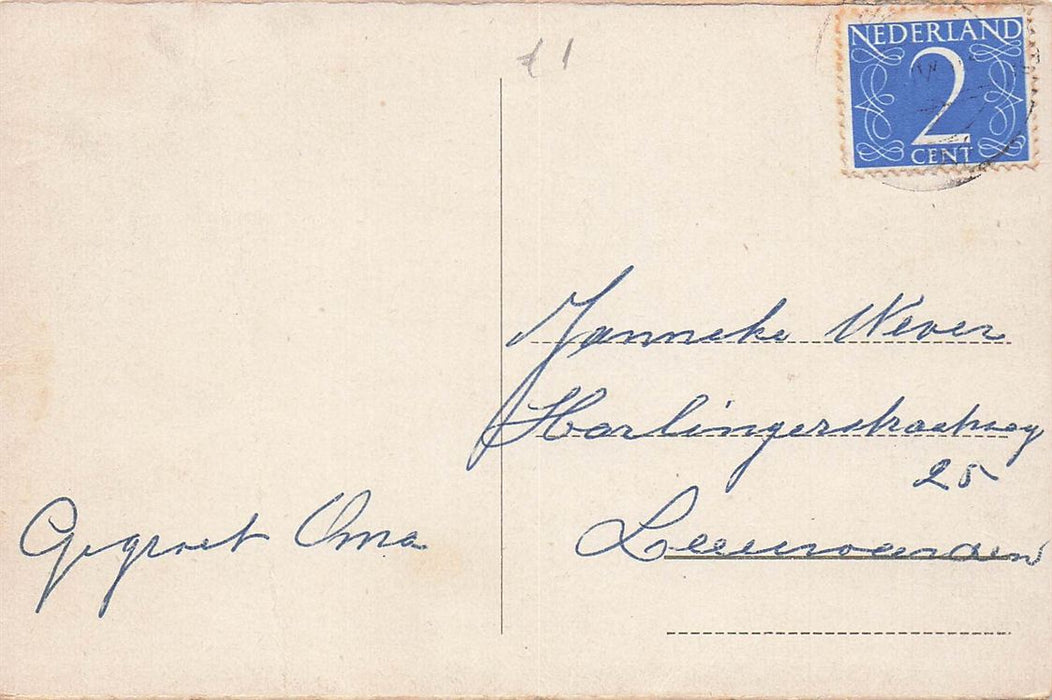 € 1
NEDERLAND
2
CENT
Janneke Wever
Harlingerstraatweg
25
Leeuwarden
Gegroet Oma